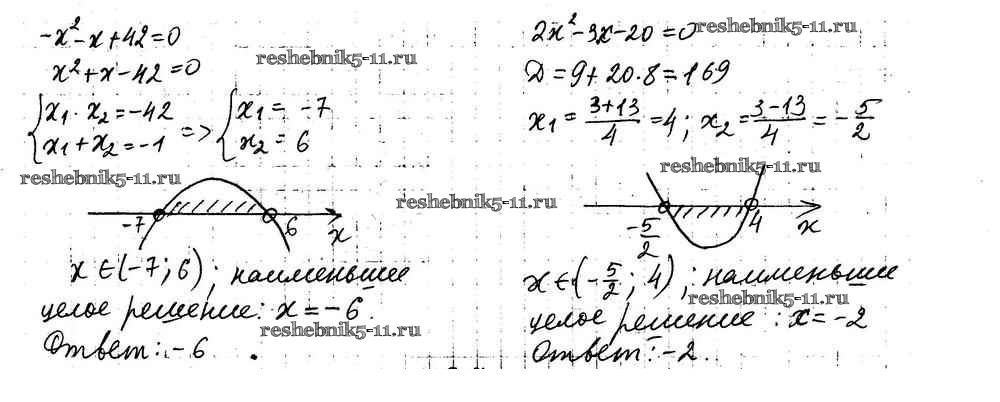 -x² - x + 42 = 0
x² + x - 42 = 0
reshebnik5-11.ru
{ x₁ · x₂ = -42
x₁ + x₂ = -1 => { x₁ = -7
x₂ = 6
reshebnik5-11.ru
-7 6 x
x ∈ (-7; 6); наименьшее
целое решение: x = -6.
reshebnik5-11.ru
Ответ: -6.
reshebnik5-11.ru
2x² - 3x - 20 = 0
reshebnik5-11.ru
Д = 9 + 20·8 = 169
x₁ = (3+13)/4 = 4; x₂ = (3-13)/4 = -5/2
reshebnik5-11.ru
-5/2 4 x
x ∈ (-5/2; 4); наименьшее
reshebnik5-11.ru
целое решение: x = -2
Ответ: -2.